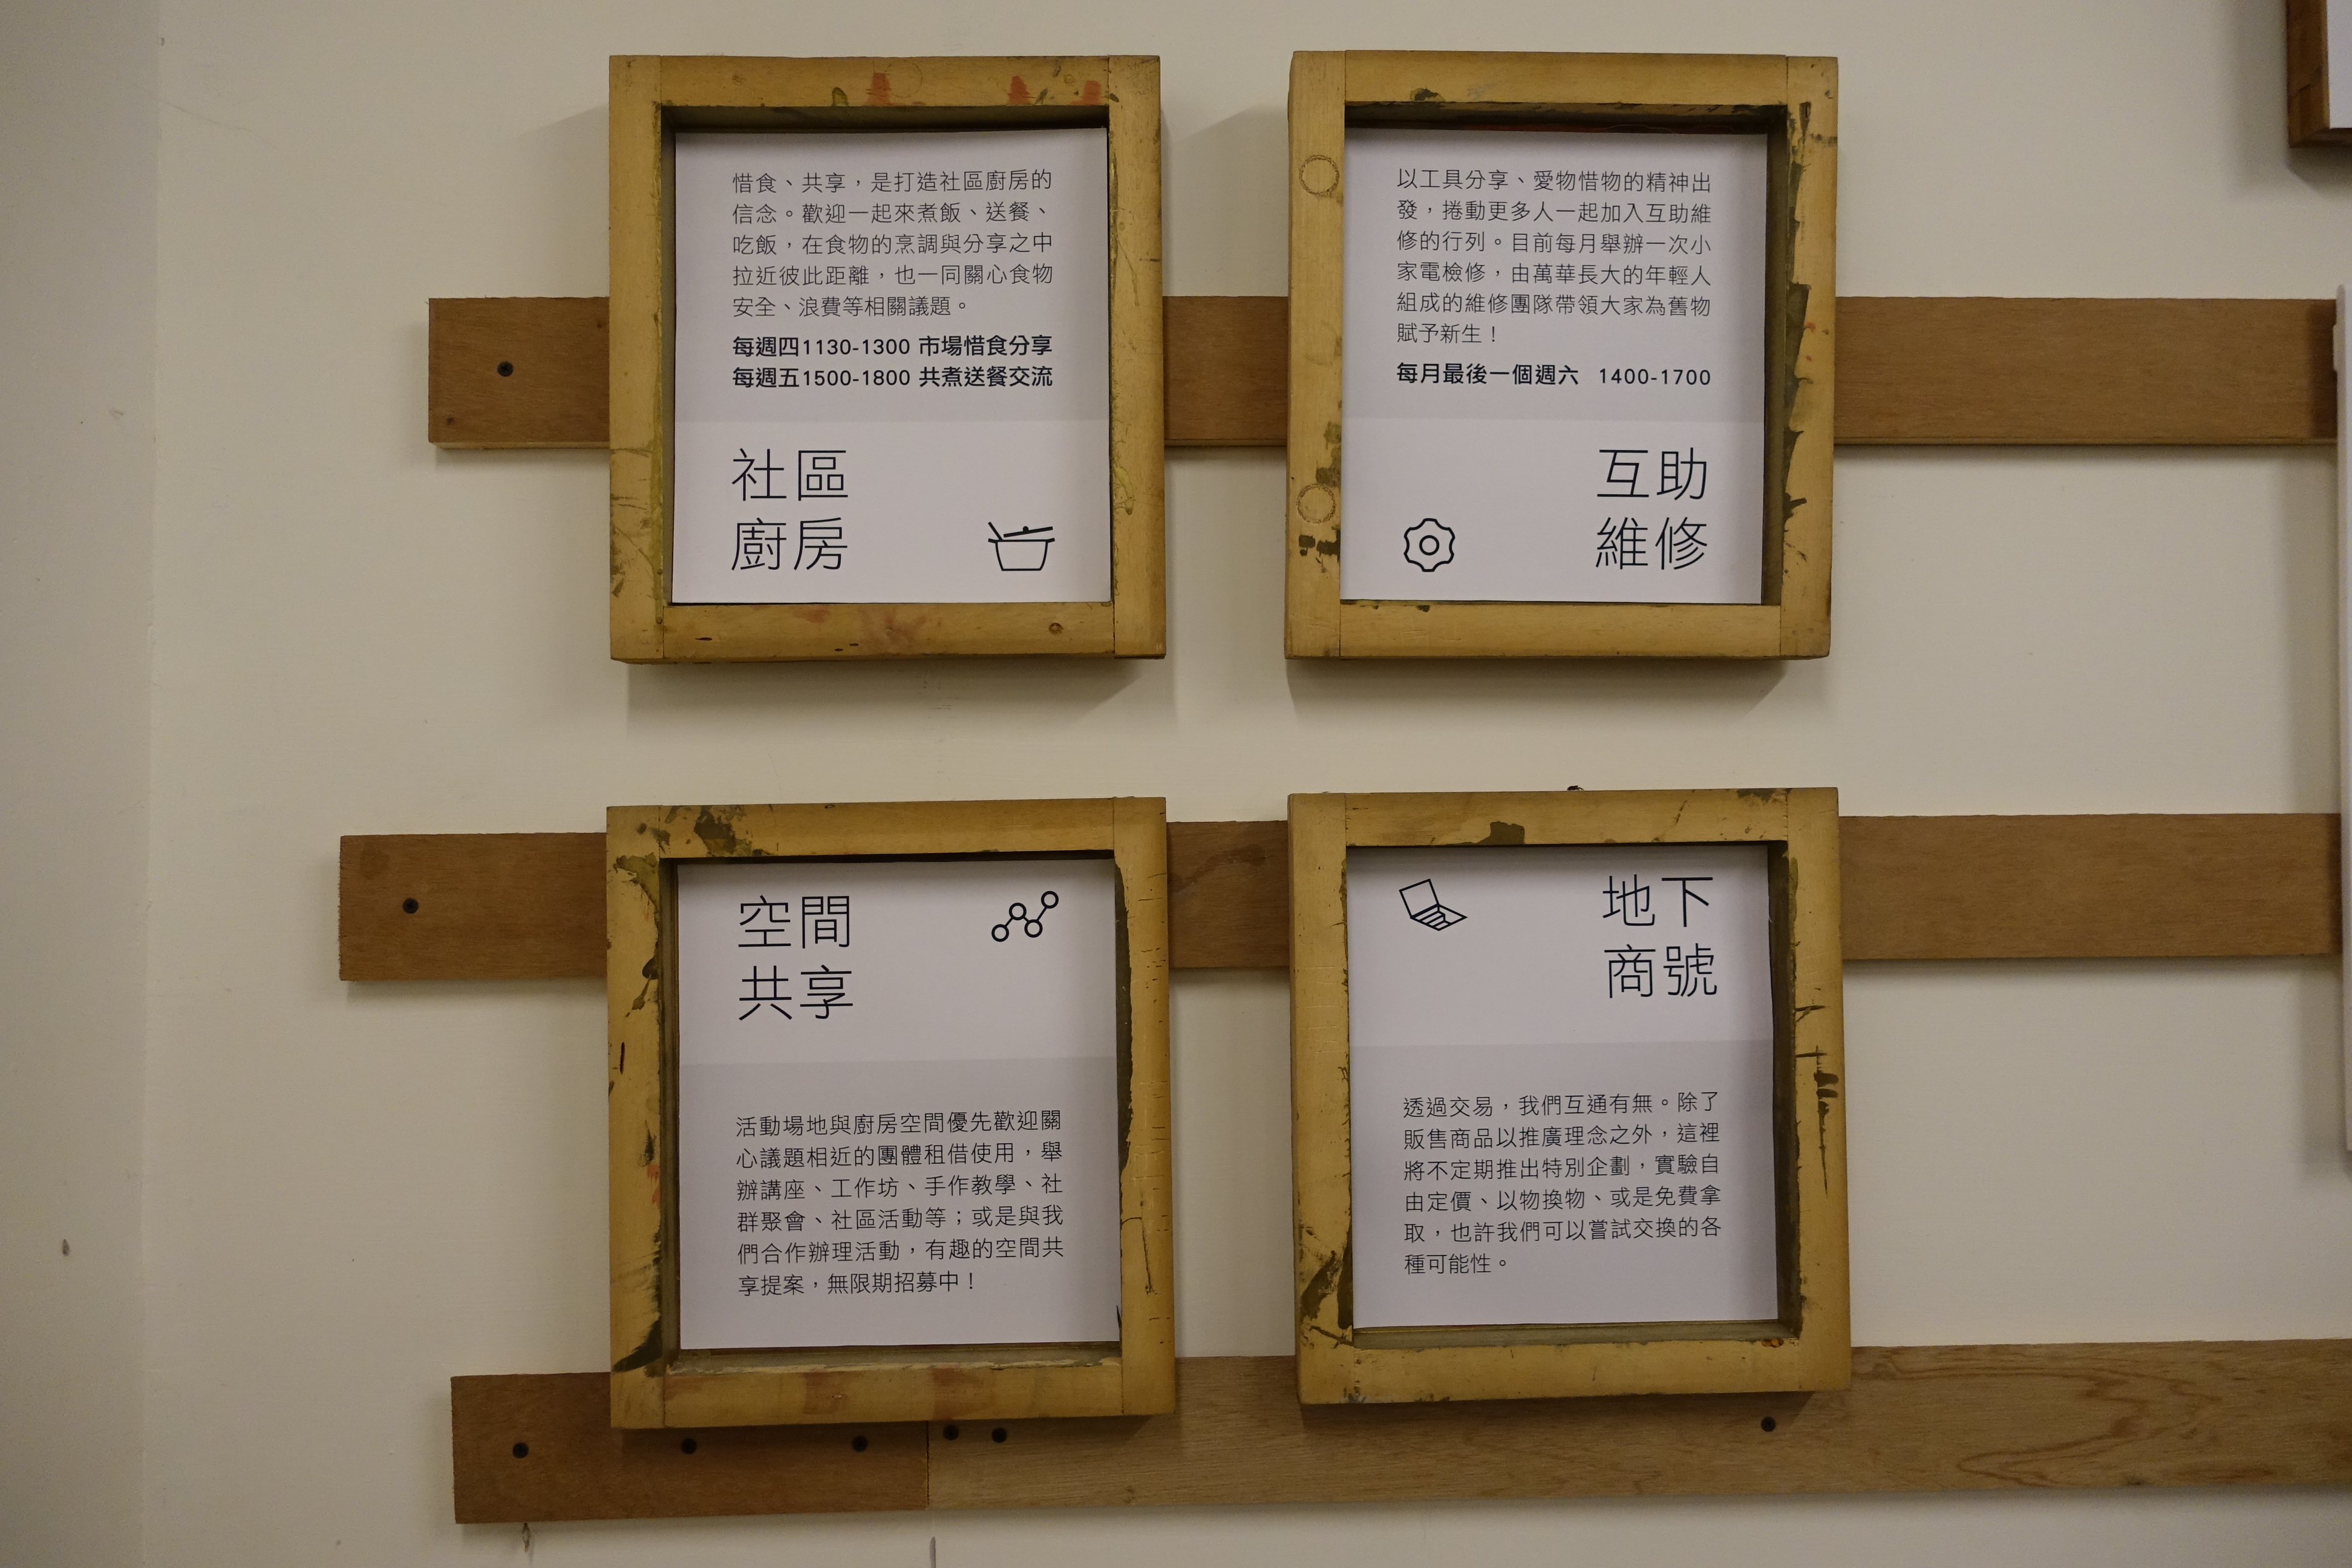 惜食、共享，是打造社區廚房的
信念。歡迎一起來煮飯、送餐、
吃飯，在食物的烹調與分享之中
拉近彼此距離，也一同關心食物
安全、浪費等相關議題。
每週四1130-1300 市場惜食分享
每週五1500-1800 共煮送餐交流
社區
廚房
以工具分享、愛物惜物的精神出
發，捲動更多人一起加入互助維
修的行列。目前每月舉辦一次小
家電檢修，由萬華長大的年輕人
組成的維修團隊帶領大家為舊物
賦予新生！
每月最後一個週六 1400-1700
互助
維修
空間
共享
活動場地與廚房空間優先歡迎關
心議題相近的團體租借使用，舉
辦講座、工作坊、手作教學、社
群聚會、社區活動等；或是與我
們合作辦理活動，有趣的空間共
享提案，無限期招募中！
地下
商號
透過交易，我們互通有無。除了
販售商品以推廣理念之外，這裡
將不定期推出特別企劃，實驗自
由定價、以物換物、或是免費拿
取，也許我們可以嘗試交換的各
種可能性。